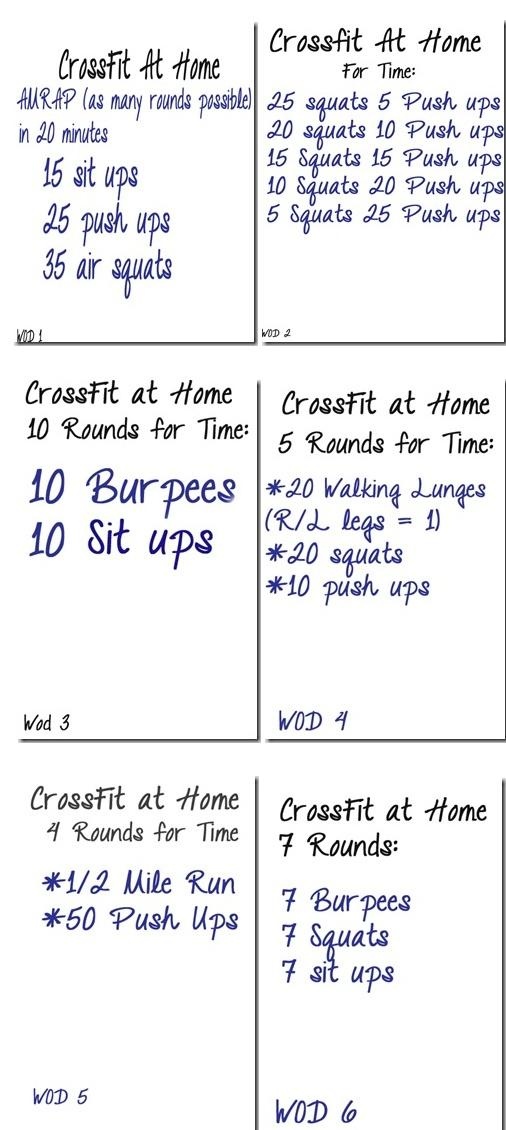 CrossFit At Home
AMRAP (as many rounds possible)
in 20 minutes
15 sit ups
25 push ups
35 air squats
WOD 1
Crossfit At Home
For Time:
25 squats 5 Push ups
20 squats 10 Push ups
15 Squats 15 Push ups
10 Squats 20 Push ups
5 Squats 25 Push ups
WOD 2
CrossFit at Home
10 Rounds for Time:
10 Burpees
10 Sit ups
Wod 3
CrossFit at Home
5 Rounds for Time:
*20 Walking Lunges
(R/L legs = 1)
*20 squats
*10 push ups
WOD 4
CrossFit at Home
4 Rounds for Time
*1/2 Mile Run
*50 Push Ups
WOD 5
CrossFit at Home
7 Rounds:
7 Burpees
7 Squats
7 sit ups
WOD 6